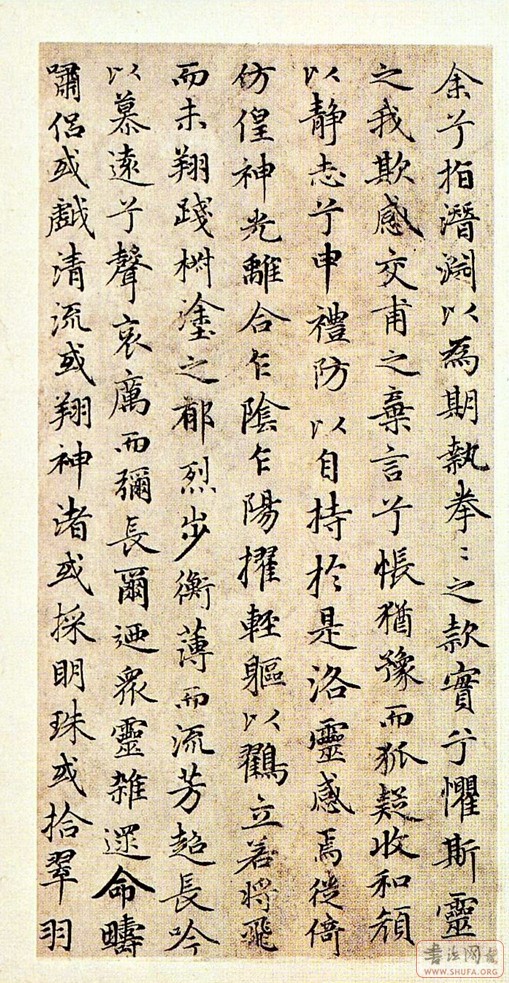 余兮指潛淵以為期執拳〻之款實兮懼斯靈
之我欺感交甫之棄言兮悵猶豫而狐疑收和顔
以静志兮申禮防以自持於是洛靈感焉徙倚
仿偟神光離合乍陰乍陽擢輕軀以鸖立若將飛
而未翔踐椒塗之郁烈步衡薄而流芳超長吟
以慕遠兮聲哀厲而彌長爾迺衆靈雜遝命疇
嘯侶或戲清流或翔神渚或採明珠或拾翠羽
书法网
WWW.SHUFA.ORG